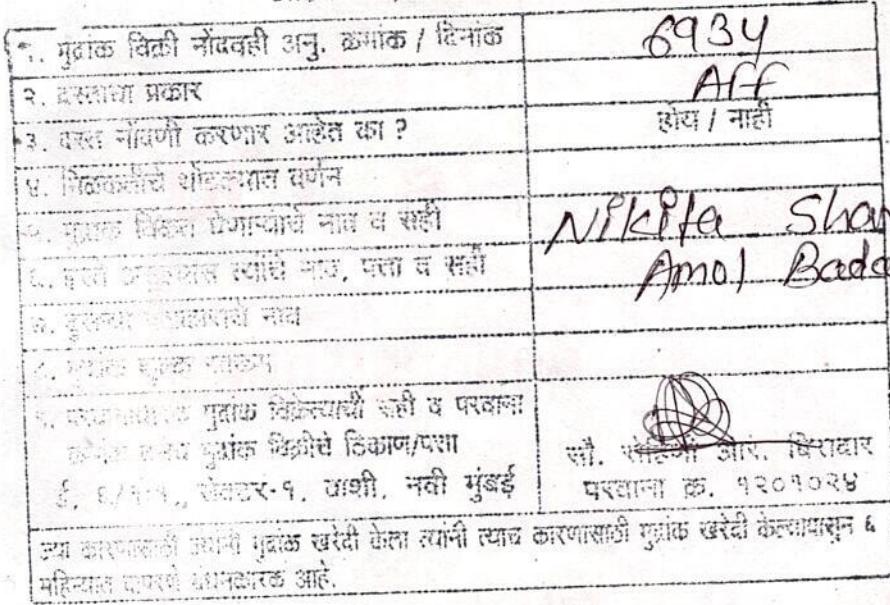 १. मुद्रांक विक्री नोंदवही अनु. क्रमांक / दिनांक 6934
२. दस्ताचा प्रकार Aff
३. दस्त नोंदणी करणार आहेत का ? होय / नाही
४. मिळकतीचे थोडक्यात वर्णन
५. मुद्रांक विकत घेणाऱ्याचे नाव व सही Nikita
६. हस्ते असल्यास त्यांचे नाव, पत्ता व सही Amol
७. दुसऱ्या पक्षकाराचे नाव
८. मुद्रांक शुल्क रक्कम
९. परवानाधारक मुद्रांक विक्रेत्याची सही व परवाना
क्रमांक तसेच मुद्रांक विक्रीचे ठिकाण/पत्ता
सौ. आर. बिरादार
सेक्टर-१, वाशी, नवी मुंबई परवाना क्र. १२०१०२४
ज्या कारणासाठी ज्यांनी मुद्रांक खरेदी केला त्यांनी त्याच कारणासाठी मुद्रांक खरेदी केल्यापासून ६
महिन्यात वापरणे बंधनकारक आहे.